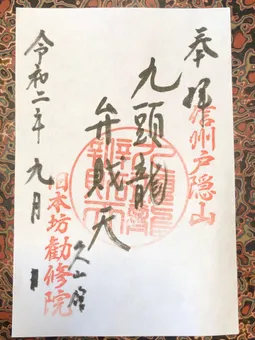 奉拝
信州戸隠山
九頭龍
弁財天
久山館
令和二年九月
旧本坊勧修院